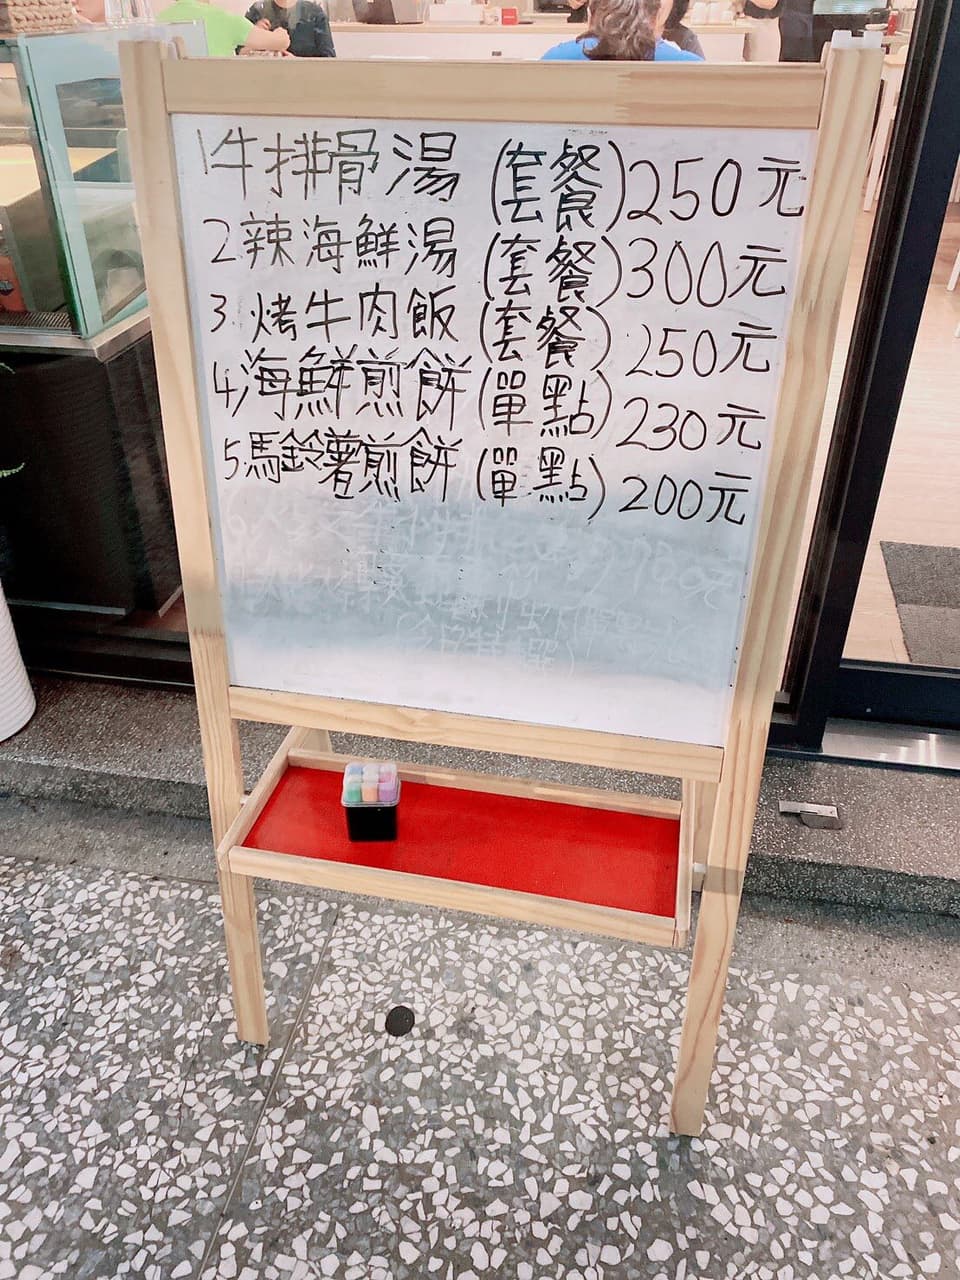 1牛排骨湯 (套餐)250元
2.辣海鮮湯 (套餐)300元
3.烤牛肉飯 (套餐)250元
4.海鮮煎餅(單點)230元
5.馬鈴薯煎餅(單點)200元